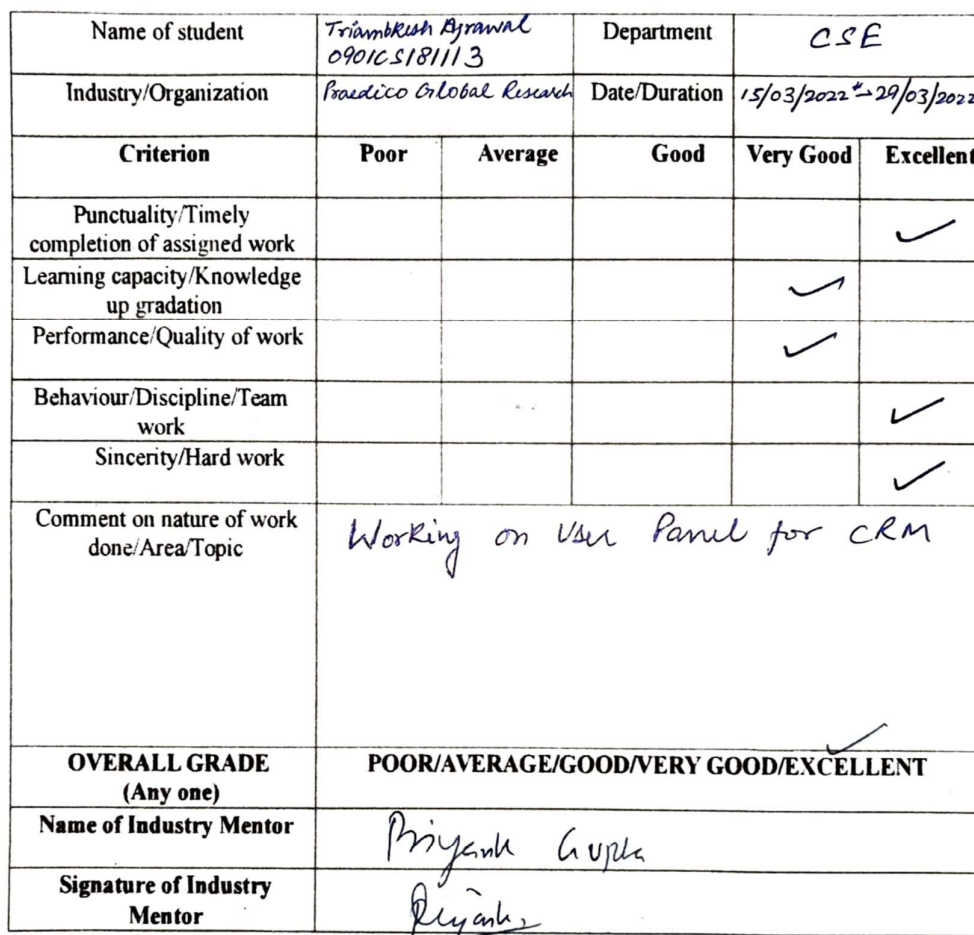 Name of student Triambkesh Agrawal Department CSE
0901CS181113
Industry/Organization Praedico Global Research Date/Duration 15/03/2022 - 29/03/2022
Criterion Poor Average Good Very Good Excellent
Punctuality/Timely
completion of assigned work ✓
Learning capacity/Knowledge
up gradation ✓
Performance/Quality of work ✓
Behaviour/Discipline/Team
work ✓
Sincerity/Hard work ✓
Comment on nature of work
done/Area/Topic
Working on User Panel for CRM
OVERALL GRADE
(Any one)
POOR/AVERAGE/GOOD/VERY GOOD/EXCELLENT ✓
Name of Industry Mentor Priyank Gupta
Signature of Industry
Mentor Priyank